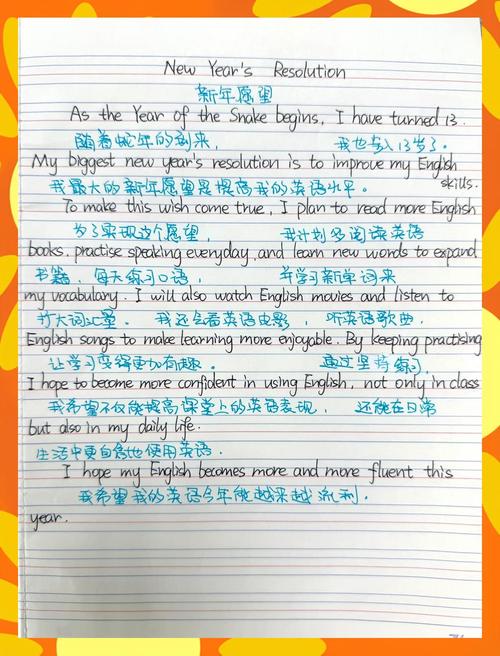 New Year's Resolution
新年愿望
As the Year of the Snake begins, I have turned 13.
随着蛇年的到来, 我也步入13岁了.
My biggest new year's resolution is to improve my English
skills.
我最大的新年愿望是提高我的英语水平。
To make this wish come true, I plan to read more English
为了实现这个愿望, 我计划多阅读英语
books, practise speaking everyday, and learn new words to expand
书籍, 每天练习口语, 并学习新单词来
my vocabulary. I will also watch English movies and listen to
扩大词汇量. 我还会看英语电影, 听英语歌曲.
English songs to make learning more enjoyable. By keeping practising
让学习变得更加有趣. 通过坚持练习,
I hope to become more confident in using English, not only in class
我希望不仅能提高课堂上的英语表现, 还能在日常
but also in my daily life.
生活中更自信地使用英语.
I hope my English becomes more and more fluent this
我希望我的英语今年能越来越流利.
year.